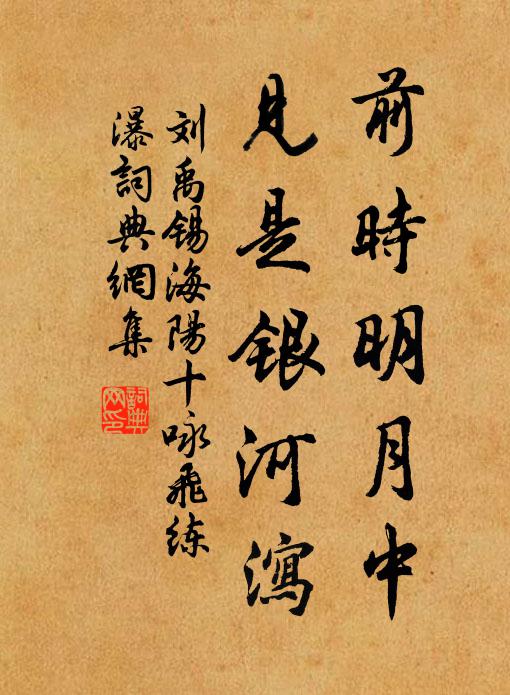 前時明月中
見是銀河瀉
刘禹锡海陽十咏飛练
瀑詞典網集
詞典
网印